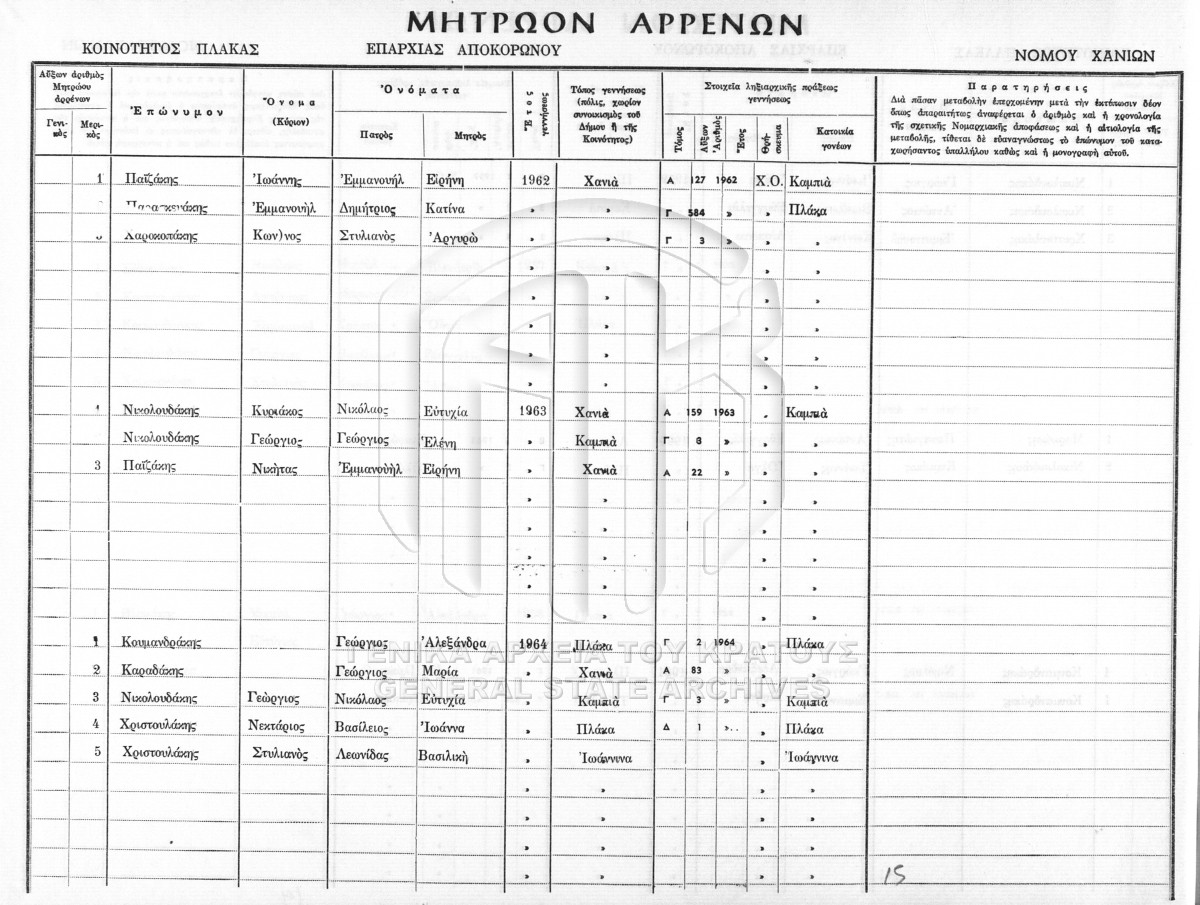 ΜΗΤΡΩΟΝ ΑΡΡΕΝΩΝ
ΚΟΙΝΟΤΗΤΟΣ ΠΛΑΚΑΣ ΕΠΑΡΧΙΑΣ ΑΠΟΚΟΡΩΝΟΥ ΝΟΜΟΥ ΧΑΝΙΩΝ
Αὔξων ἀριθμὸς Μητρώου ἀρρένων
Γενικὸς Μερικὸς
Ἐπώνυμον
Ὄνομα (Κύριον)
Ὀνόματα
Πατρὸς Μητρὸς
Ἔτος γεννήσεως
Τόπος γεννήσεως (πόλις, χωρίον συνοικισμὸς τοῦ Δήμου ἢ τῆς Κοινότητος)
Στοιχεῖα ληξιαρχικῆς πράξεως γεννήσεως
Τόμος Αὔξων Ἀριθμὸς Ἔτος Θρήσκευμα Κατοικία γονέων
Παρατηρήσεις
Διὰ πᾶσαν μεταβολὴν ἐπερχομένην μετὰ τὴν ἐκτύπωσιν δέον
ὅπως ἀπαραιτήτως ἀναφέρεται ὁ ἀριθμὸς καὶ ἡ χρονολογία
τῆς σχετικῆς Νομαρχιακῆς ἀποφάσεως καὶ ἡ αἰτιολογία τῆς
μεταβολῆς, τίθεται δὲ εὐαναγνώστως τὸ ἐπώνυμον τοῦ κατα-
χωρήσαντος ὑπαλλήλου καθὼς καὶ ἡ μονογραφὴ αὐτοῦ.
1 Παϊζάκης Ἰωάννης Ἐμμανουήλ Εἰρήνη 1962 Χανιὰ Α 127 1962 Χ.Ο. Καμπιὰ
Παρασκευάκης Ἐμμανουὴλ Δημήτριος Κατίνα » » Γ 584 » » Πλάκα
Χαροκοπάκης Κων)νος Στυλιανὸς Ἀργυρὼ » » Γ 3 » » »
» » » »
» » » »
» » » »
» » » »
» » » »
1 Νικολουδάκης Κυριάκος Νικόλαος Εὐτυχία 1963 Χανιὰ Α 159 1963 » Καμπιὰ
Νικολουδάκης Γεώργιος Γεώργιος Ἑλένη » Καμπιὰ Γ 6 » » »
3 Παϊζάκης Νικήτας Ἐμμανουὴλ Εἰρήνη » Χανιὰ Α 22 » » »
» » » »
» » » »
» » » »
» » » »
» » » »
1 Κουμανδράκης Γεώργιος Ἀλεξάνδρα 1964 Πλάκα Γ 2 1964 » Πλάκα
2 Καραδάκης Γεώργιος Μαρία » Χανιὰ Α 83 » » »
3 Νικολουδάκης Γεώργιος Νικόλαος Εὐτυχία » Καμπιὰ Γ 3 » » Καμπιὰ
4 Χριστουλάκης Νεκτάριος Βασίλειος Ἰωάννα » Πλάκα Δ 1 » » Πλάκα
5 Χριστουλάκης Στυλιανὸς Λεωνίδας Βασιλικὴ » Ἰωάννινα » Ἰωάννινα
» » » »
» » » »
» » » »
» » » »
ΓΕΝΙΚΑ ΑΡΧΕΙΑ ΤΟΥ ΚΡΑΤΟΥΣ
GENERAL STATE ARCHIVES
15